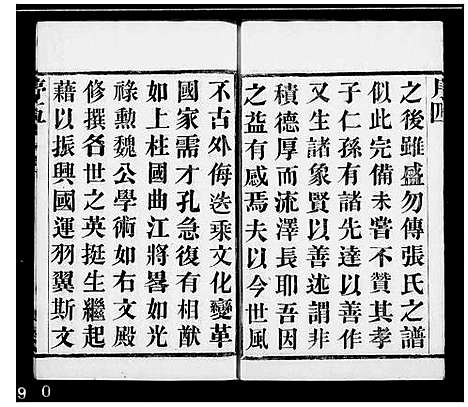 序四
之後雖盛勿傳張氏之譜
似此完備未嘗不贊其孝
子仁孫有諸先達以善作
又生諸象賢以善述謂非
積德厚而流澤長耶吾因
之益有感焉夫以今世風
不古外侮迭乘文化變革
國家需才孔急復有相猷
如上柱國曲江將畧如光
祿勲魏公學術如右文殿
修撰各世之英挺生繼起
藉以振興國運羽翼斯文
序五
9 0